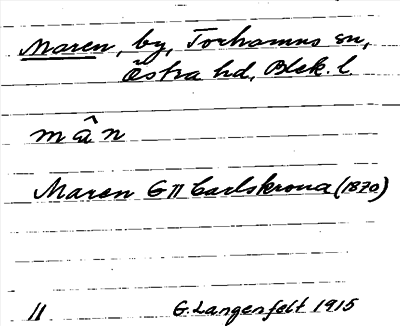 Maren, by, Torhamns sn,
Östra hd, Blek. l.
mân
Maren G II Carlskrona (1870)
11 G. Langenfelt 1915